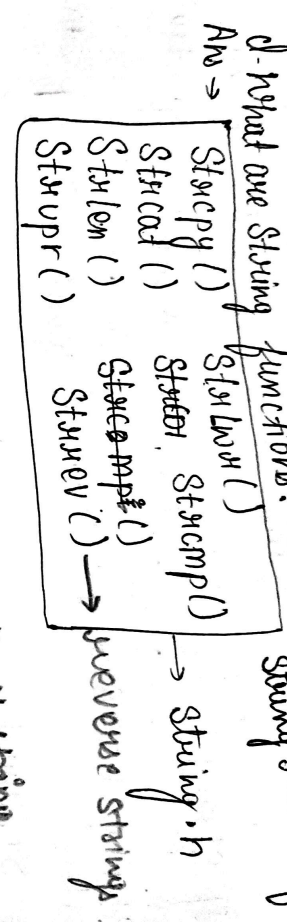 d. What are String functions.
Ans → Strcpy() Strlwr()
Strcat() Strcmp() → string.h
Strlen()
Strupr() Strrev() → reverse strings